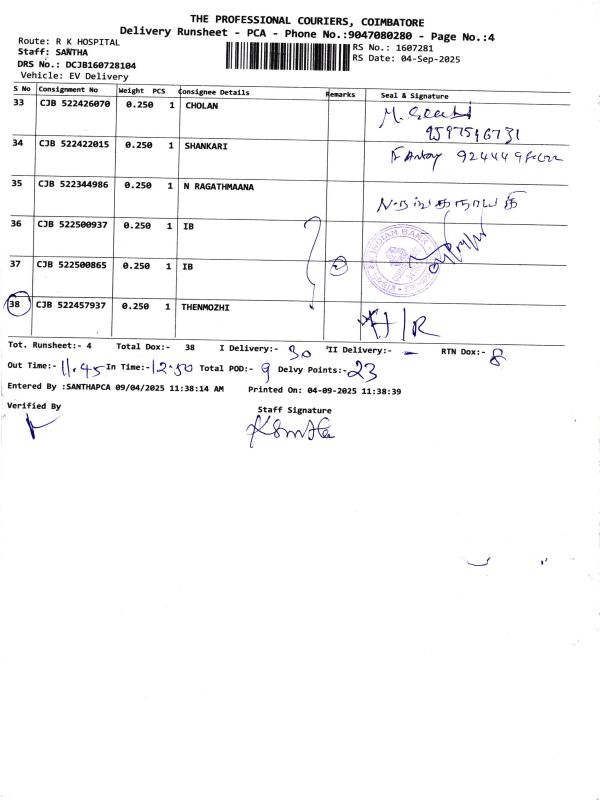 THE PROFESSIONAL COURIERS, COIMBATORE
Delivery Runsheet - PCA - Phone No.:9047080280 - Page No.:4
Route: R K HOSPITAL
Staff: SANTHA
DRS No.: DCJB160728104
Vehicle: EV Delivery
RS No.: 1607281
RS Date: 04-Sep-2025
S No Consignment No Weight PCS Consignee Details Remarks Seal & Signature
33 CJB 522426070 0.250 1 CHOLAN
9597516731
34 CJB 522422015 0.250 1 SHANKARI
35 CJB 522344986 0.250 1 N RAGATHMAANA
36 CJB 522500937 0.250 1 IB
INDIAN BANK
37 CJB 522500865 0.250 1 IB 2
38 CJB 522457937 0.250 1 THENMOZHI
H/R
Tot. Runsheet:- 4 Total Dox:- 38 I Delivery:- 30 II Delivery:- - RTN Dox:- 8
Out Time:- 11.45 In Time:- 12.50 Total POD:- 9 Delvy Points:- 23
Entered By :SANTHAPCA 09/04/2025 11:38:14 AM Printed On: 04-09-2025 11:38:39
Verified By
Staff Signature